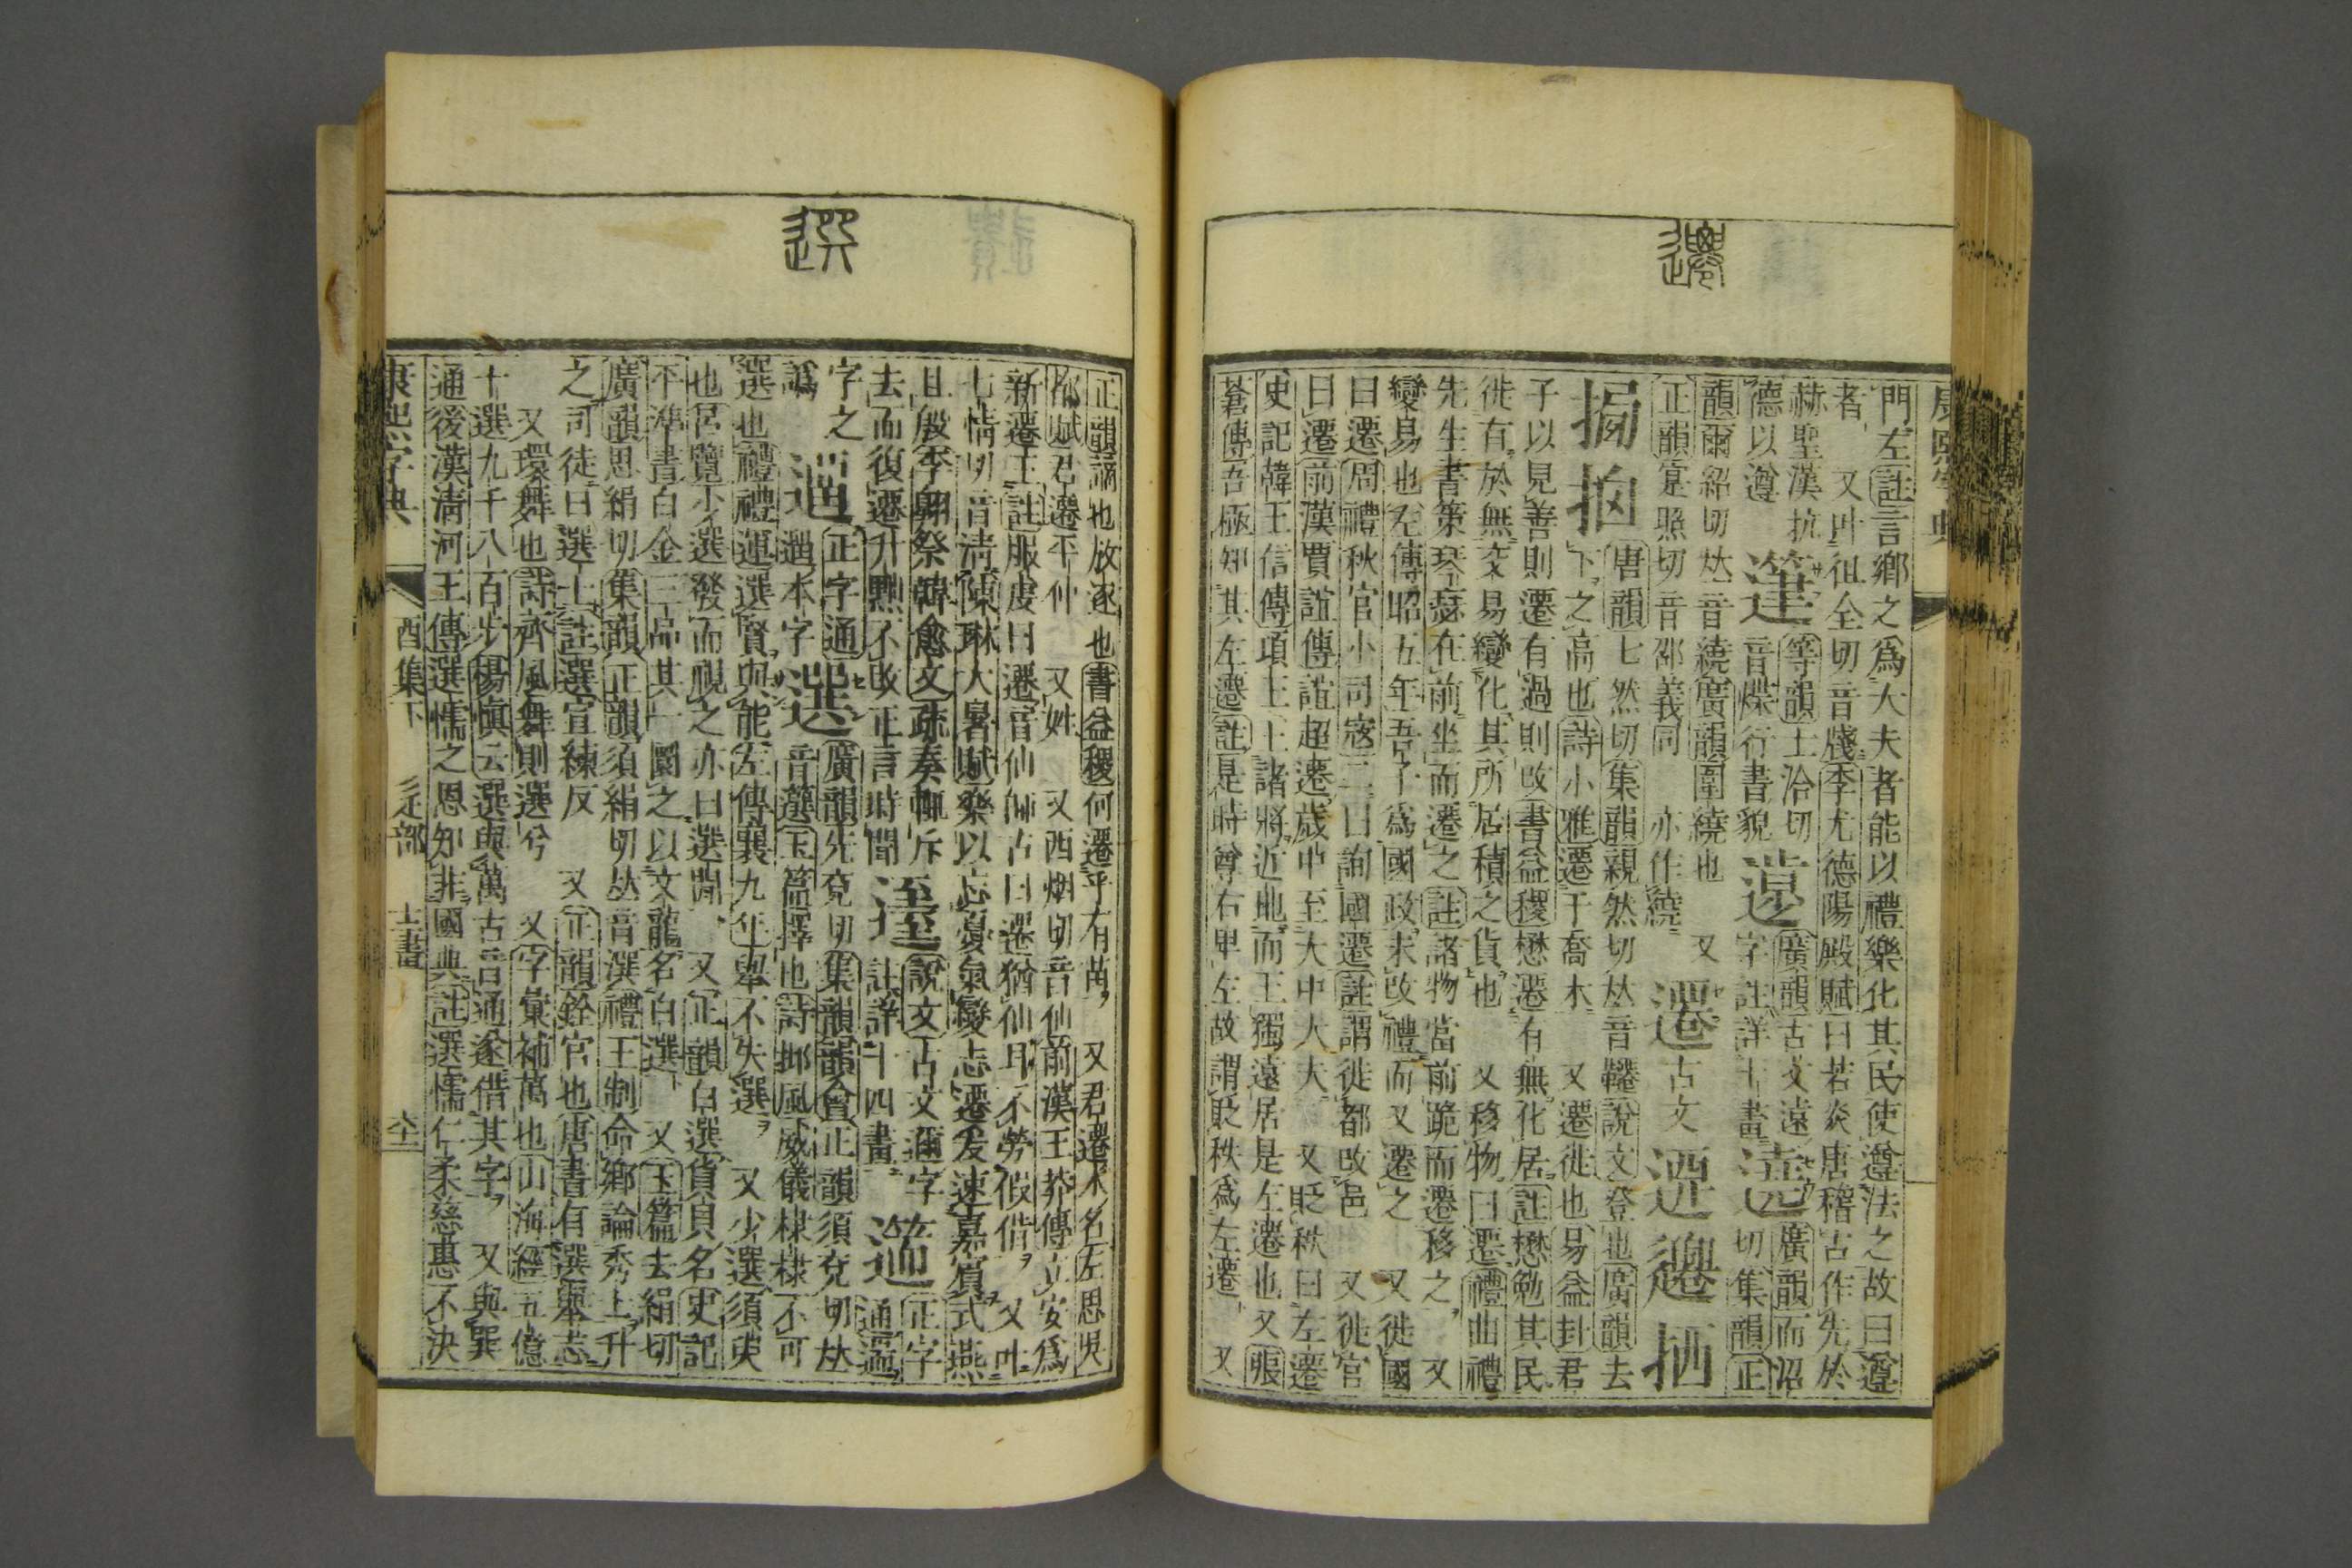 遷
康熙字典
門左註言鄉之爲大夫者能以禮樂化其民使遵法之故曰遵
者 又叶徂全切音牋李尤德陽殿賦曰若炎唐稽古作先於
赫聖漢抗
德以遵 等韻士洽切
音煠行書貌 廣韻古文遠
字註詳十畫 遶 廣韻而沼
切集韻正
韻爾紹切𠀤音繞廣韻圍繞也 又
正韻寔照切音邵義同 亦作繞 遷 古文
拪 唐韻七然切集韻親然切𠀤音韆說文登也廣韻去
下之高也詩小雅遷于喬木 又遷徙也易益卦君
子以見善則遷有過則改書益稷懋遷有無化居註懋勉其民
徙有於無交易變化其所居積之貨也 又移物曰遷禮曲禮
先生書策琴瑟在前坐而遷之註諸物當前跪而遷移之 又
變易也左傳昭五年吾子爲國政未改禮而又遷之 又徙國
曰遷周禮秋官小司寇二曰詢國遷註謂徙都改邑 又徙官
曰遷前漢賈誼傳誼超遷歲中至大中大夫 又貶秩曰左遷
史記韓王信傳項王王諸將近地而王獨遠居是左遷也又張
蒼傳吾極知其左遷註是時尊右卑左故謂貶秩爲左遷 又
選
正韻謫也放逐也書益稷何遷乎有苗 又君遷木名左思吳
都賦君遷平仲 又姓 又西烟切音仙前漢王莽傳立安爲
新遷王註服虔曰遷音仙師古曰遷猶仙耳不勞假借 又叶
七情切音淸陳琳大暑賦樂以忘憂氣變志遷爰速嘉賓式燕
且殷李翺祭韓愈文疏奏輒斥
去而復遷升黜不改正言時聞 說文古文邇字
註詳十四畫 正字
通邁
字之
譌 正字通
遒本字 選 廣韻先兗切集韻韻會正韻須兗切𠀤
音𠎠玉篇擇也詩邶風威儀棣棣不可
選也禮禮運選賢與能左傳襄九年舉不失選 又少選須臾
也呂覽少選發而視之亦曰選閒 又正韻白選貨貝名史記
平準書白金三品其一圜之以文龍名白選 又玉篇去絹切
廣韻思絹切集韻正韻須絹切𠀤音潠禮王制命鄉論秀士升
之司徒曰選士註選宣練反 又正韻銓官也唐書有選舉志
又環舞也詩齊風舞則選兮 又字彙補萬也山海經五億
十選九千八百步楊愼云選與萬古音通遂借其字 又與巽
通後漢淸河王傳選懦之恩知非國典註選懦仁柔慈惠不決
康熙字典 酉集下 辵部 十二畫